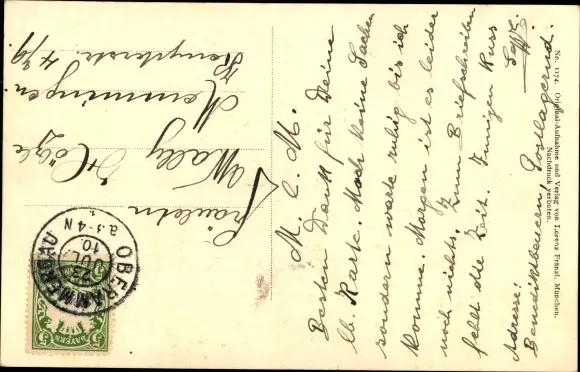 M. L. M.
Besten Dank für Deine
lb. Karte. Mach keine Sachen
sondern warte ruhig bis ich
komme. Morgen ist es leider
noch nichts. Zum Briefschreiben
fehlt die Zeit. Innigen Kuss
Adresse:
Benediktbeuern, Postlagernd.
Fräulein
Wally Hözle
Memmingen.
Kempterstr. 4/9
No. 1174. Original-Aufnahme und Verlag von Lorenz Fränzl, München.
Nachdruck verboten.
OBERAMMERGAU
23 JUL.
10.
BAYERN
5
5